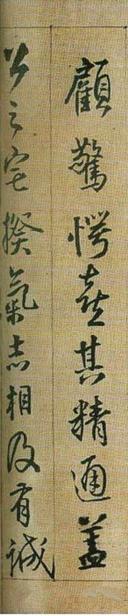 顧驚愕嘉其精通蓋
公之宅揆氣志相及有誠